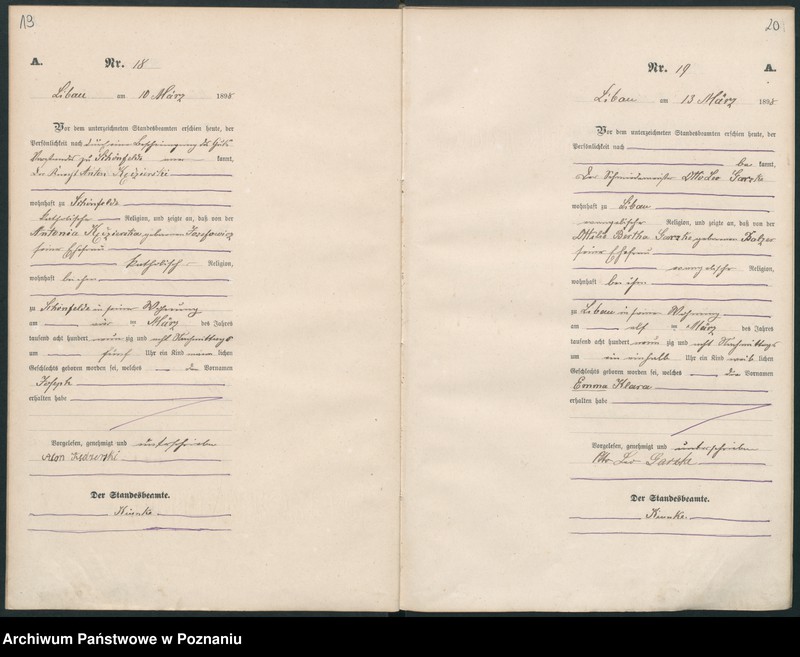 19
A.
Nr. 18
Libau am 10 März 1898
Vor dem unterzeichneten Standesbeamten erschien heute, der
Persönlichkeit nach durch eine Bescheinigung des Guts
Vorstandes zu Schönfelde kannt,
der Knecht Anton
wohnhaft zu Schönfelde
katholischer Religion, und zeigte an, daß von der
Antonia geborenen Josefowicz
seiner Ehefrau
katholisch Religion,
wohnhaft bei ihm
zu Schönfelde in seiner Wohnung
am vier ten März des Jahres
tausend acht hundert neun zig und acht Nachmittags
um fünf Uhr ein Kind männ lichen
Geschlechts geboren worden sei, welches den Vornamen
Joseph
erhalten habe
Vorgelesen, genehmigt und unterschrieben
Der Standesbeamte.
20
Nr. 19
A.
Libau am 13 März 1898
Vor dem unterzeichneten Standesbeamten erschien heute, der
Persönlichkeit nach
be kannt,
der Schmiedemeister Otto Leo Garske
wohnhaft zu Libau
evangelischer Religion, und zeigte an, daß von der
Ottilie Bertha Garske geborenen Balzer
seiner Ehefrau
evangelischer Religion,
wohnhaft bei ihm
zu Libau in seiner Wohnung
am elf ten März des Jahres
tausend acht hundert neun zig und acht Nachmittags
um ein einhalb Uhr ein Kind weib lichen
Geschlechts geboren worden sei, welches die Vornamen
Emma Klara
erhalten habe
Vorgelesen, genehmigt und unterschrieben
Otto Leo Garske
Der Standesbeamte.
Archiwum Państwowe w Poznaniu